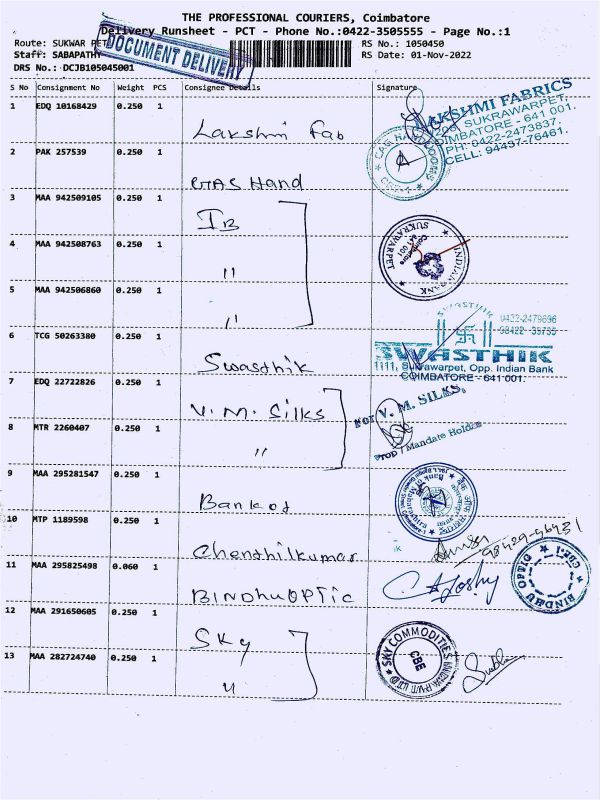 THE PROFESSIONAL COURIERS, Coimbatore
Delivery Runsheet - PCT - Phone No.:0422-3505555 - Page No.:1
Route: SUKWAR PET
RS No.: 1050450
DOCUMENT DELIVERY
Staff: SABAPATHY
RS Date: 01-Nov-2022
DRS No.: DCJB105045001
S No Consignment No Weight PCS Consignee Details Signature
1 EDQ 10168429 0.250 1
Lakshmi Fab
LAKSHMI FABRICS
SUKRAWARPET,
COIMBATORE - 641 001.
PH: 0422-2473837.
CELL: 94437-76461.
2 PAK 257539 0.250 1
GAS Hand
3 MAA 942509105 0.250 1
IB
4 MAA 942508763 0.250 1
"
INDIAN BANK
SUKRAWARPET
Coimbatore
641 001
5 MAA 942506860 0.250 1
"
6 TCG 50263380 0.250 1
Swasthik
SWASTHIK
0422-2479696
98422-
SWASTHIK
1111, Sukrawarpet, Opp. Indian Bank
COIMBATORE - 641 001.
7 EDQ 22722826 0.250 1
V. M. Silks
For V. M. SILKS,
8 MTR 2260407 0.250 1
"
Mandate Holder
9 MAA 295281547 0.250 1
Bank of
10 MTP 1189598 0.250 1
Chenthilkumar
98429-96431
11 MAA 295825498 0.060 1
BINDHU OPTIC
BINDHU OPTIC
CBE-1
12 MAA 291650605 0.250 1
SKY
SKY COMMODITIES INDIA (PVT) LTD
CBE
13 MAA 282724740 0.250 1
"